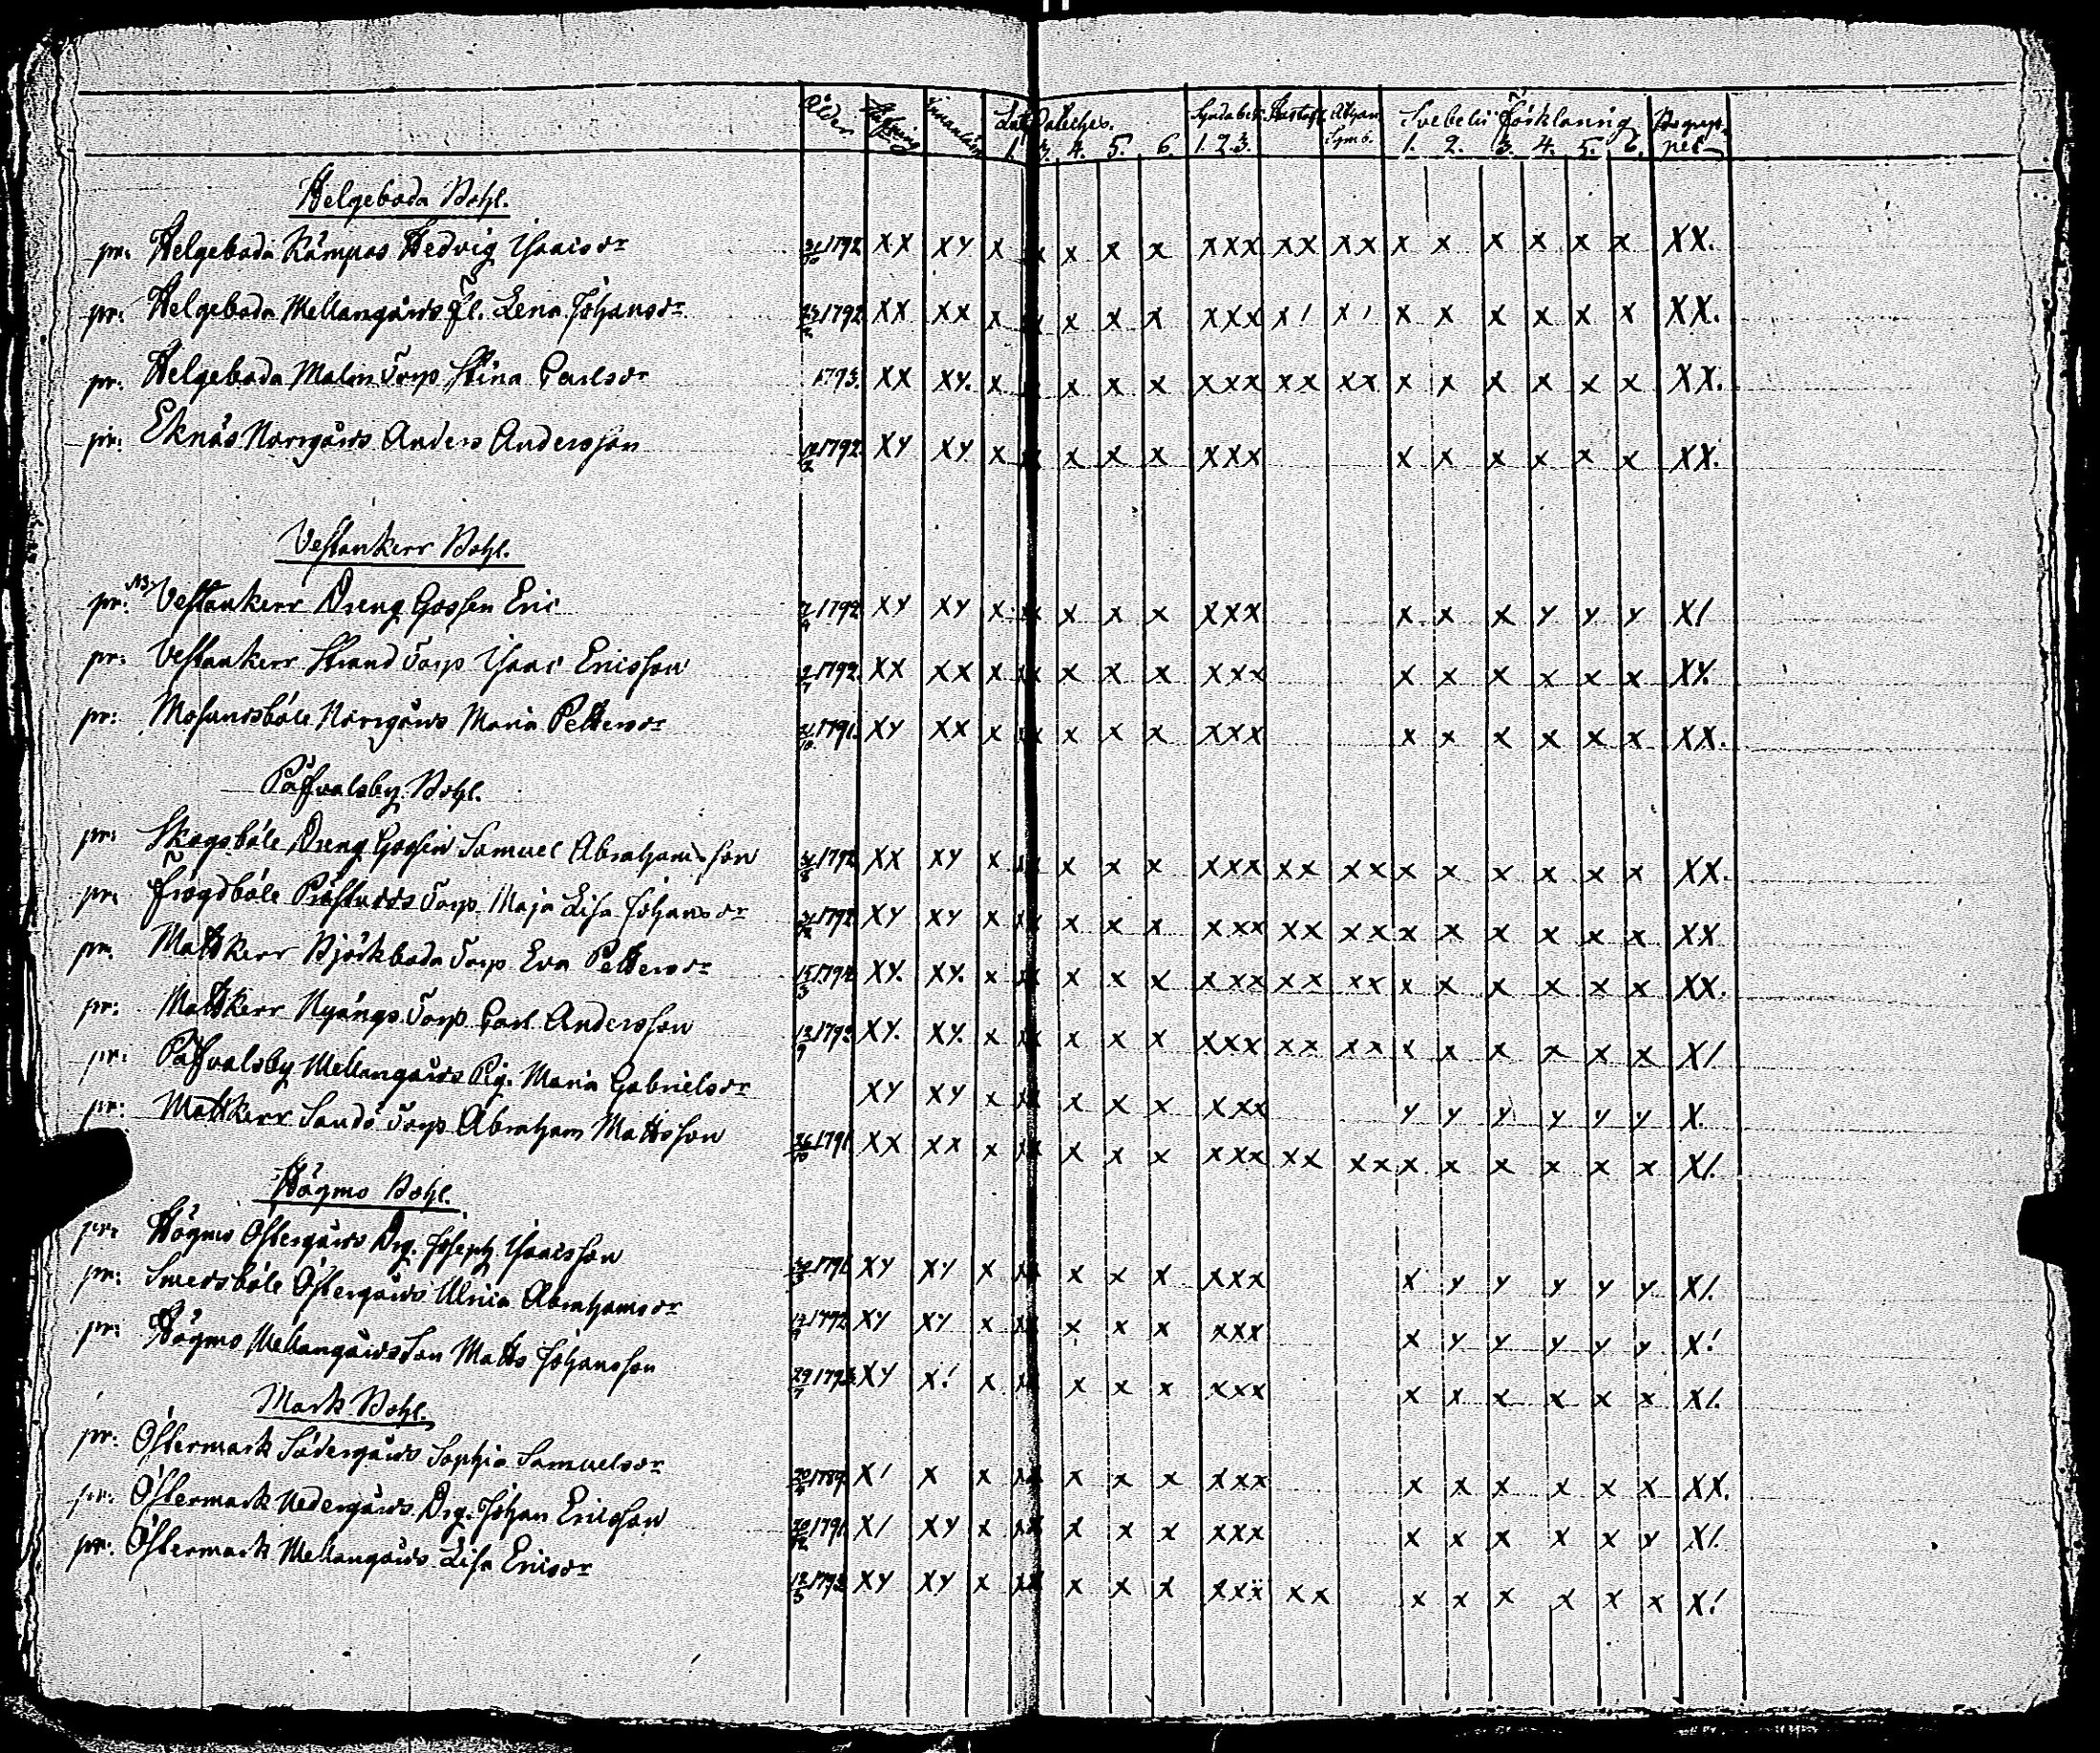 Ålder Stafning Innanläsn. Luth. Cateches. Syndabek. Hustafl. Athan. Svebelii Förklaring Begrep-
1. 3. 4. 5. 6. 1. 2. 3. Symb. 1. 2. 3. 4. 5. 6. pet
Helgeboda Bohl.
pr. Helgeboda Kämpas Hedvig Isacsdr 1792 XX XY X X X X X XXX XX XX X X X X X X XX.
pr. Helgeboda Mellangårds fl. Lena Johansdr 1792 XX XX X X X X X XXX X/ X/ X X X X X X XX.
pr. Helgeboda Malm Torp Stina Carlsdr 1793. XX XY. X X X X X XXX XX XX X X X X X X XX.
pr. Eknäs Norrgårds Anders Andersson 1792. XY XY. X X X X X XXX X X X X X X XX.
Vestankerr Bohl.
pr. NB Vestankerr Dreng Gossen Eric 1792 XY XY X X X X X XXX X X X Y Y Y X/
pr. Vestankerr Strand Torp Isaac Ericsson 1792. XX XX X X X X X XXX X X X X X X XY.
pr. Mosundsböle Norrgårds Maria Pettersdr 1791. XY XX X X X X X XXX X X X X X X XX.
Påfvalsby Bohl.
pr. Skogsböle Dreng Gossen Samuel Abrahamsson 1792 XX XY X X X X X XXX XX XX X X X X X X XX.
pr. Frögdböle Prästnäs Torp Maja Lisa Johansdr 1792 XY XY X X X X X XXX XX XX X X X X X X XX
pr. Mattkerr Björkboda Torp Eva Pettersdr 15/3 1792. XY. XY. X X X X X XXX XX XX X X X X X X XX.
pr. Mattkerr Nyängs Torp Carl Andersson 13/9 1792 XY. XY. X X X X X XXX XX XX X X X X X X X/.
pr. Påfvalsby Mellangårds Pig. Maria Gabrielsdr XY XY X X X X X XXX Y Y Y Y Y Y X.
pr. Mattkerr Sandö Torp Abraham Mattsson 26/10 1791 XX XX X X X X X XXX XX XX X X X X X X X/.
Högmo Bohl.
pr. Högmo Östergårds Drg. Joseph Isacsson 1791 XY X/ X X X X X XXX X Y Y Y Y Y X/.
pr. Smedsböle Östergårds Ulrica Abrahamsdr 1792 XY XY X X X X X XXX X Y Y Y Y Y X!
pr. Högmo Mellangårds Son Matts Johansson 29/7 1792 XY X! X X X X X XXX X X X X X X X/.
Mark Bohl.
pr. Östermark Södergårds Sophia Samuelsdr 1789. X/ X X X X X X XXX X X X X X X XX.
pr. Östermark Nedergårds Drg. Johan Ericsson 1791 X/ XY X X X X X XXX X X X X X Y X/.
pr. Östermark Mellangårds Lisa Ericsdr 1792 XY XY X X X X X XXX XX X X X X X X X!